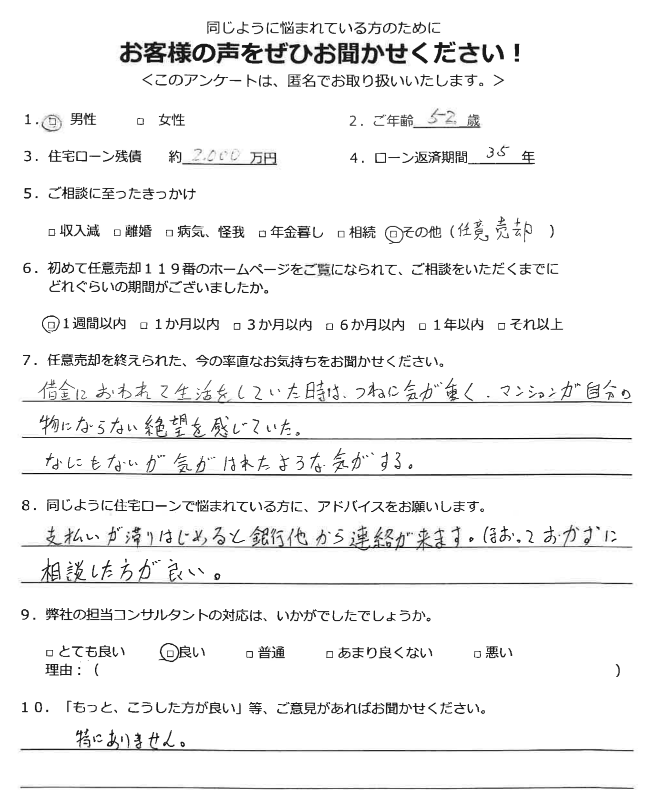 同じように悩まれている方のために
お客様の声をぜひお聞かせください！
＜このアンケートは、匿名でお取り扱いいたします。＞
１．□ 男性　□ 女性　２．ご年齢 52 歳
３．住宅ローン残債　約 2.000 万円　４．ローン返済期間 35 年
５．ご相談に至ったきっかけ
□収入減　□離婚　□病気、怪我　□年金暮し　□相続　□その他（任意売却　）
６．初めて任意売却１１９番のホームページをご覧になられて、ご相談をいただくまでに
どれぐらいの期間がございましたか。
□１週間以内　□１か月以内　□３か月以内　□６か月以内　□１年以内　□それ以上
７．任意売却を終えられた、今の率直なお気持ちをお聞かせください。
借金におわれて生活をしていた時は、つねに気が重く、マンションが自分の
物にならない絶望を感じていた。
なにもないが気がはれたような気がする。
８．同じように住宅ローンで悩まれている方に、アドバイスをお願いします。
支払いが滞りはじめると銀行他から連絡が来ます。ほおっておかずに
相談した方が良い。
９．弊社の担当コンサルタントの対応は、いかがでしたでしょうか。
□とても良い　□良い　□普通　□あまり良くない　□悪い
理由：（　）
１０．「もっと、こうした方が良い」等、ご意見があればお聞かせください。
特にありません。